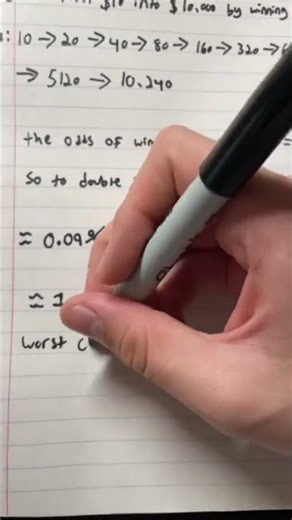 $10 into $10,000 by winning
: 10 → 20 → 40 → 80 → 160 → 320 →
→ 5120 → 10.240
the odds of win =
so to double
≈ 0.09%
≈ 1
worst c